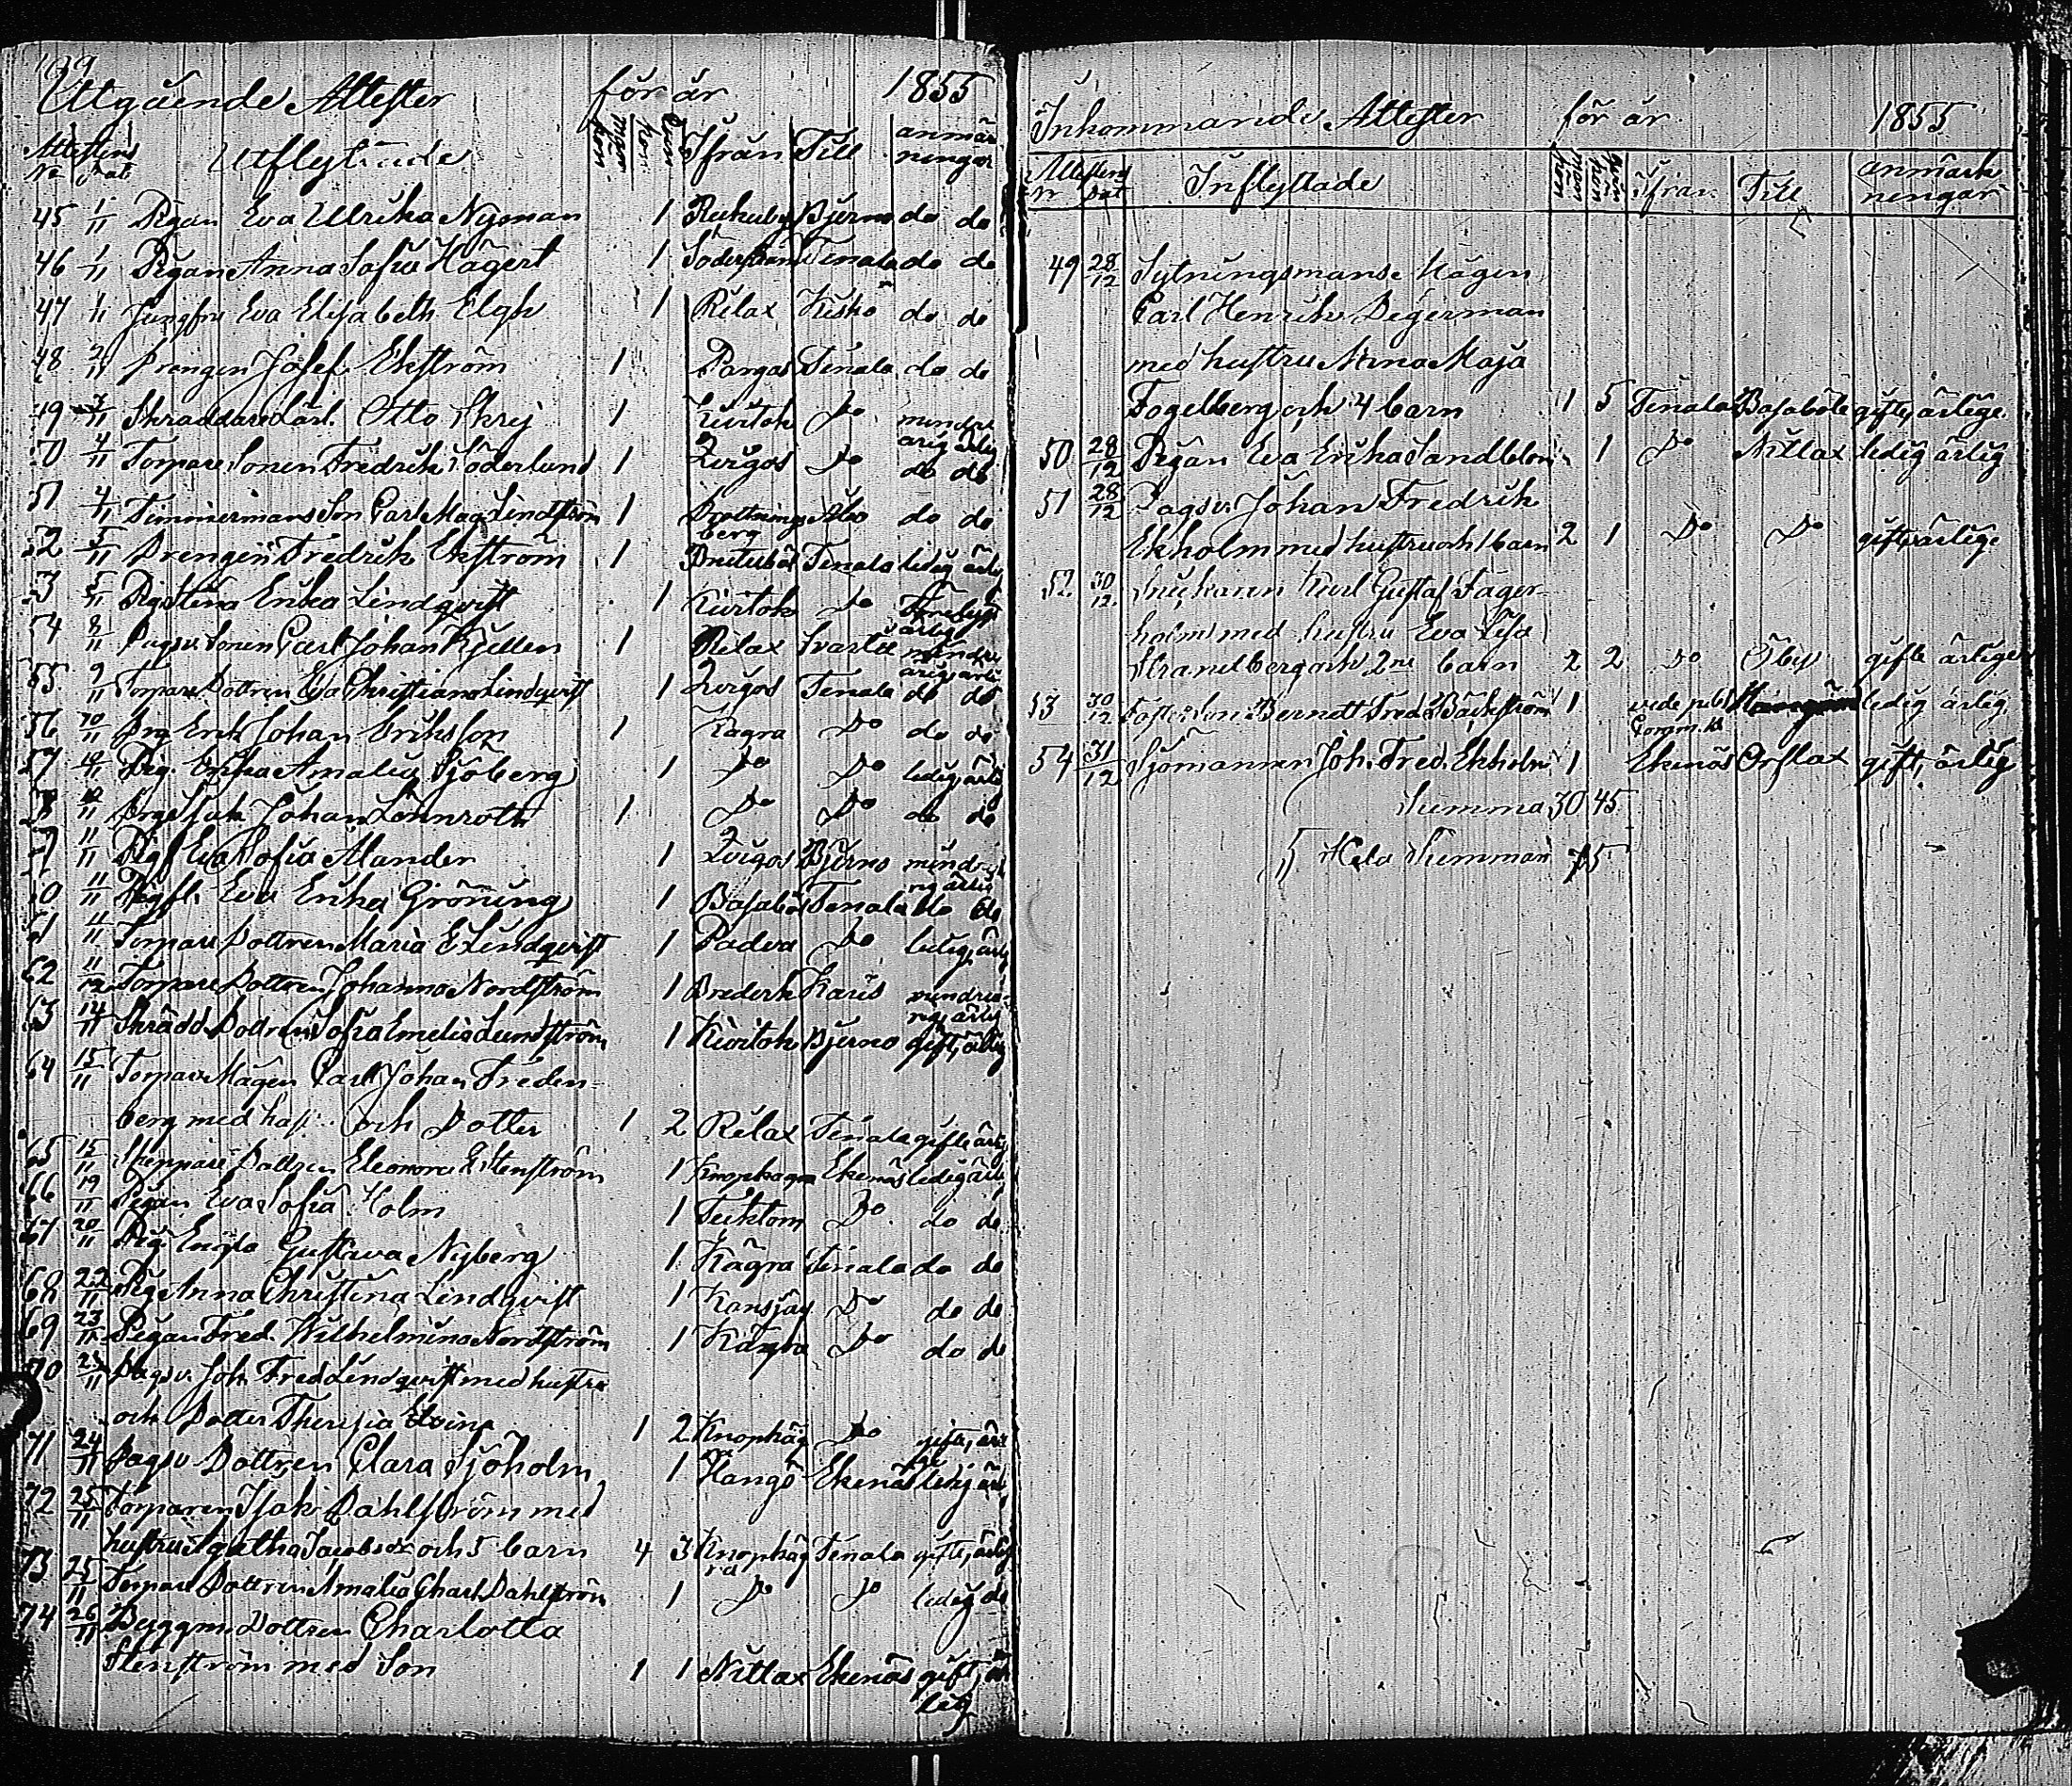 109
Utgående Attester för år 1855
Attestens Utflyttade Man kön Qvin kön Ifrån Till anmärk
No Dat ningar
45 1/11 Pigan Eva Ulrika Nyman 1 Bjerno do do
46 1/11 Pigan Anna Sofia Hägert 1 Tenala do do
47 1/11 Jungfru Eva Elisabeth Elgh 1 Rilax Kisko do do
48 2/11 Drengen Josef Ekström 1 Pargas Tenala do do
49 3/11 Skraddare Lärl. Otto Skrej 1 Kivitok Do mindre
årig ärlig
50 4/11 Torpare Sonen Fredrik Söderlund 1 Zvigos Do do do
51 4/11 Timmermans Son Carl Mag Lindström 1 Drottnings Åbo do do
berg
52 5/11 Drengen Fredrik Ekström 1 Tenala ledig ärlig
53 5/11 Pig Stina Erika Lindqvist 1 Kivitok Do
ärlig
54 8/11 Dagsv. Sonen Carl Johan Kjellen 1 Rilax Svartå mindre
årig ärlig
55 9/11 Torpare Dottren Eva Christiana Lindqvist 1 Zvigos Tenala do do
56 10/11 Drg Erik Johan Eriksson 1 Kagra Do do do
57 10/11 Pig. Erika Amalia Sjöberg 1 Do Do ledig, ärlig
58 10/11 Drg Isak Johan Lönnroth 1 Do Do do do
59 11/11 Pigf Eva Sofia Alander 1 Zvigos Bjerno mindreå
rig ärlig
60 11/11 Pigfl. Eva Erika Gröning 1 Basaböl Tenala do do
61 11/11 Torpare Dottren Maria E Lindqvist 1 Padva Do ledig, ärlig
62 11/12 Torpare Dottren Johanna Nordström 1 Brederik Karis mindreå
rig, ärlig
63 14/11 Skrädd. Dottren Sofia Emelia Lundström 1 Kivitok Bjerno gift, ärlig
64 15/11 Torpare Mågen Carl Johan Freden-
berg med hust. och Dotter 1 2 Rilax Tenala gifte, ärlig
65 15/11 Skeppare Dottren Eleonora E Stenström 1 Ekenäs ledig ärlig
66 19/11 Pigan Eva Sofia Holm 1 Tecktom Do do do
67 20/11 Pig. Gustava Nyberg 1 Kagra Tenala do do
68 22/11 Pig Anna Christina Lindqvist 1 Kansjärf Do do do
69 23/11 Pigan Fred. Wilhelmina Nordström 1 Do do do
70 23/11 Dagsv. Joh Fred Lindqvist med hustru
och Dotter Theresia Elvina 1 2 Knophäg Do gifte, ärli
ra ge
71 24/11 Dagsv Dottren Clara Sjöholm 1 Hangö Ekenäs ledig ärl
72 25/11 Torparen Isak Dahlström med
hustru Agatha Jacobsdr och 5 barn 4 3 Knophäg Tenala gifte, ärlig
ra
73 25/11 Torpare Dottren Amalia Charl. Dahlström 1 Do Do ledig do
74 26/11 Byggm. Dottren Charlotta
Stenström med Son 1 1 Nitlax Ekenäs gift, är
lig
Inkommande Attester för år 1855
Attestens Inflyttade Man kön Qvin kön Ifrån Till anmärk
Nr Dat ningar
49 28/12 Sytningsmans Mågen
Carl Henrik Degerman
med hustru Anna Maja
Fogelberg och 4 barn 1 5 Tenala Basaböle gifte, ärlige.
50 28/12 Pigan Eva Erika Sandblom 1 Do Nitlax ledig ärlig
51 28/12 Dagsv. Johan Fredrik
Ekholm med hustru och 1 barn 2 1 Do Do gifte ärlige
52 30/12 Karl Gustaf Fager-
holm med hustru Eva Lisa
Strandberg och 2ne barn 2 2 Do Öby gifte ärlige
53 30/12 Berndt Fred. Bäckström 1 ledig ärlig
54 31/12 Sjömannen Joh. Fred. Ekholm 1 Ekenäs Orslax gift, ärlig
Summa 30 45
Hela Summan 75